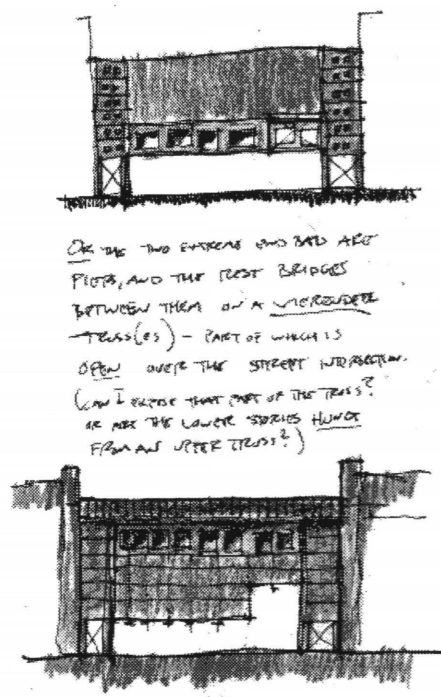 OR THE TWO EXTREME END BAYS ARE
PIERS, AND THE REST BRIDGES
BETWEEN THEM ON A VIERENDEEL
TRUSS(ES) – PART OF WHICH IS
OPEN OVER THE STREET INTERSECTION.
(CAN I EXPOSE THAT PART OF THE TRUSS?
OR ARE THE LOWER STORIES HUNG
FROM AN UPPER TRUSS?)